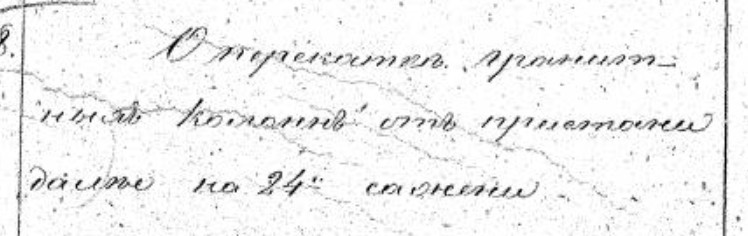 8. О перекаткѣ гранит-
ныхъ колоннъ отъ пристани
далѣе на 24ъ сажени